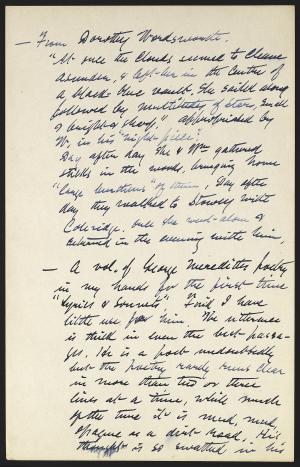 — From Dorothy Wordsworth.
"At once the clouds seemed to cleave
asunder, & left her in the centre of
a black-blue vault. She sailed along
followed by multitudes of stars, small
& bright & sharp," appropriated by
W. in his "night-piece".
Day after day She & Wm gathered
sticks in the woods, bringing home
"large burthens" of them, Day after
day they walked to Stowey with
Coleridge. Once she went alone &
returned in the evening with him,
— A vol. of George Merediths poetry
in my hands for the first time
"Lyrics & Sonnets," Find I have
little use for him. The utterance
is thick in even the best passa-
ges. He is a poet undoubtedly
but the poetry rarely runs clear
in more than two or three
lines at a time, while much
of the time it is mud, mud,
opaque as a dirt road. His
thought is so swathed in his